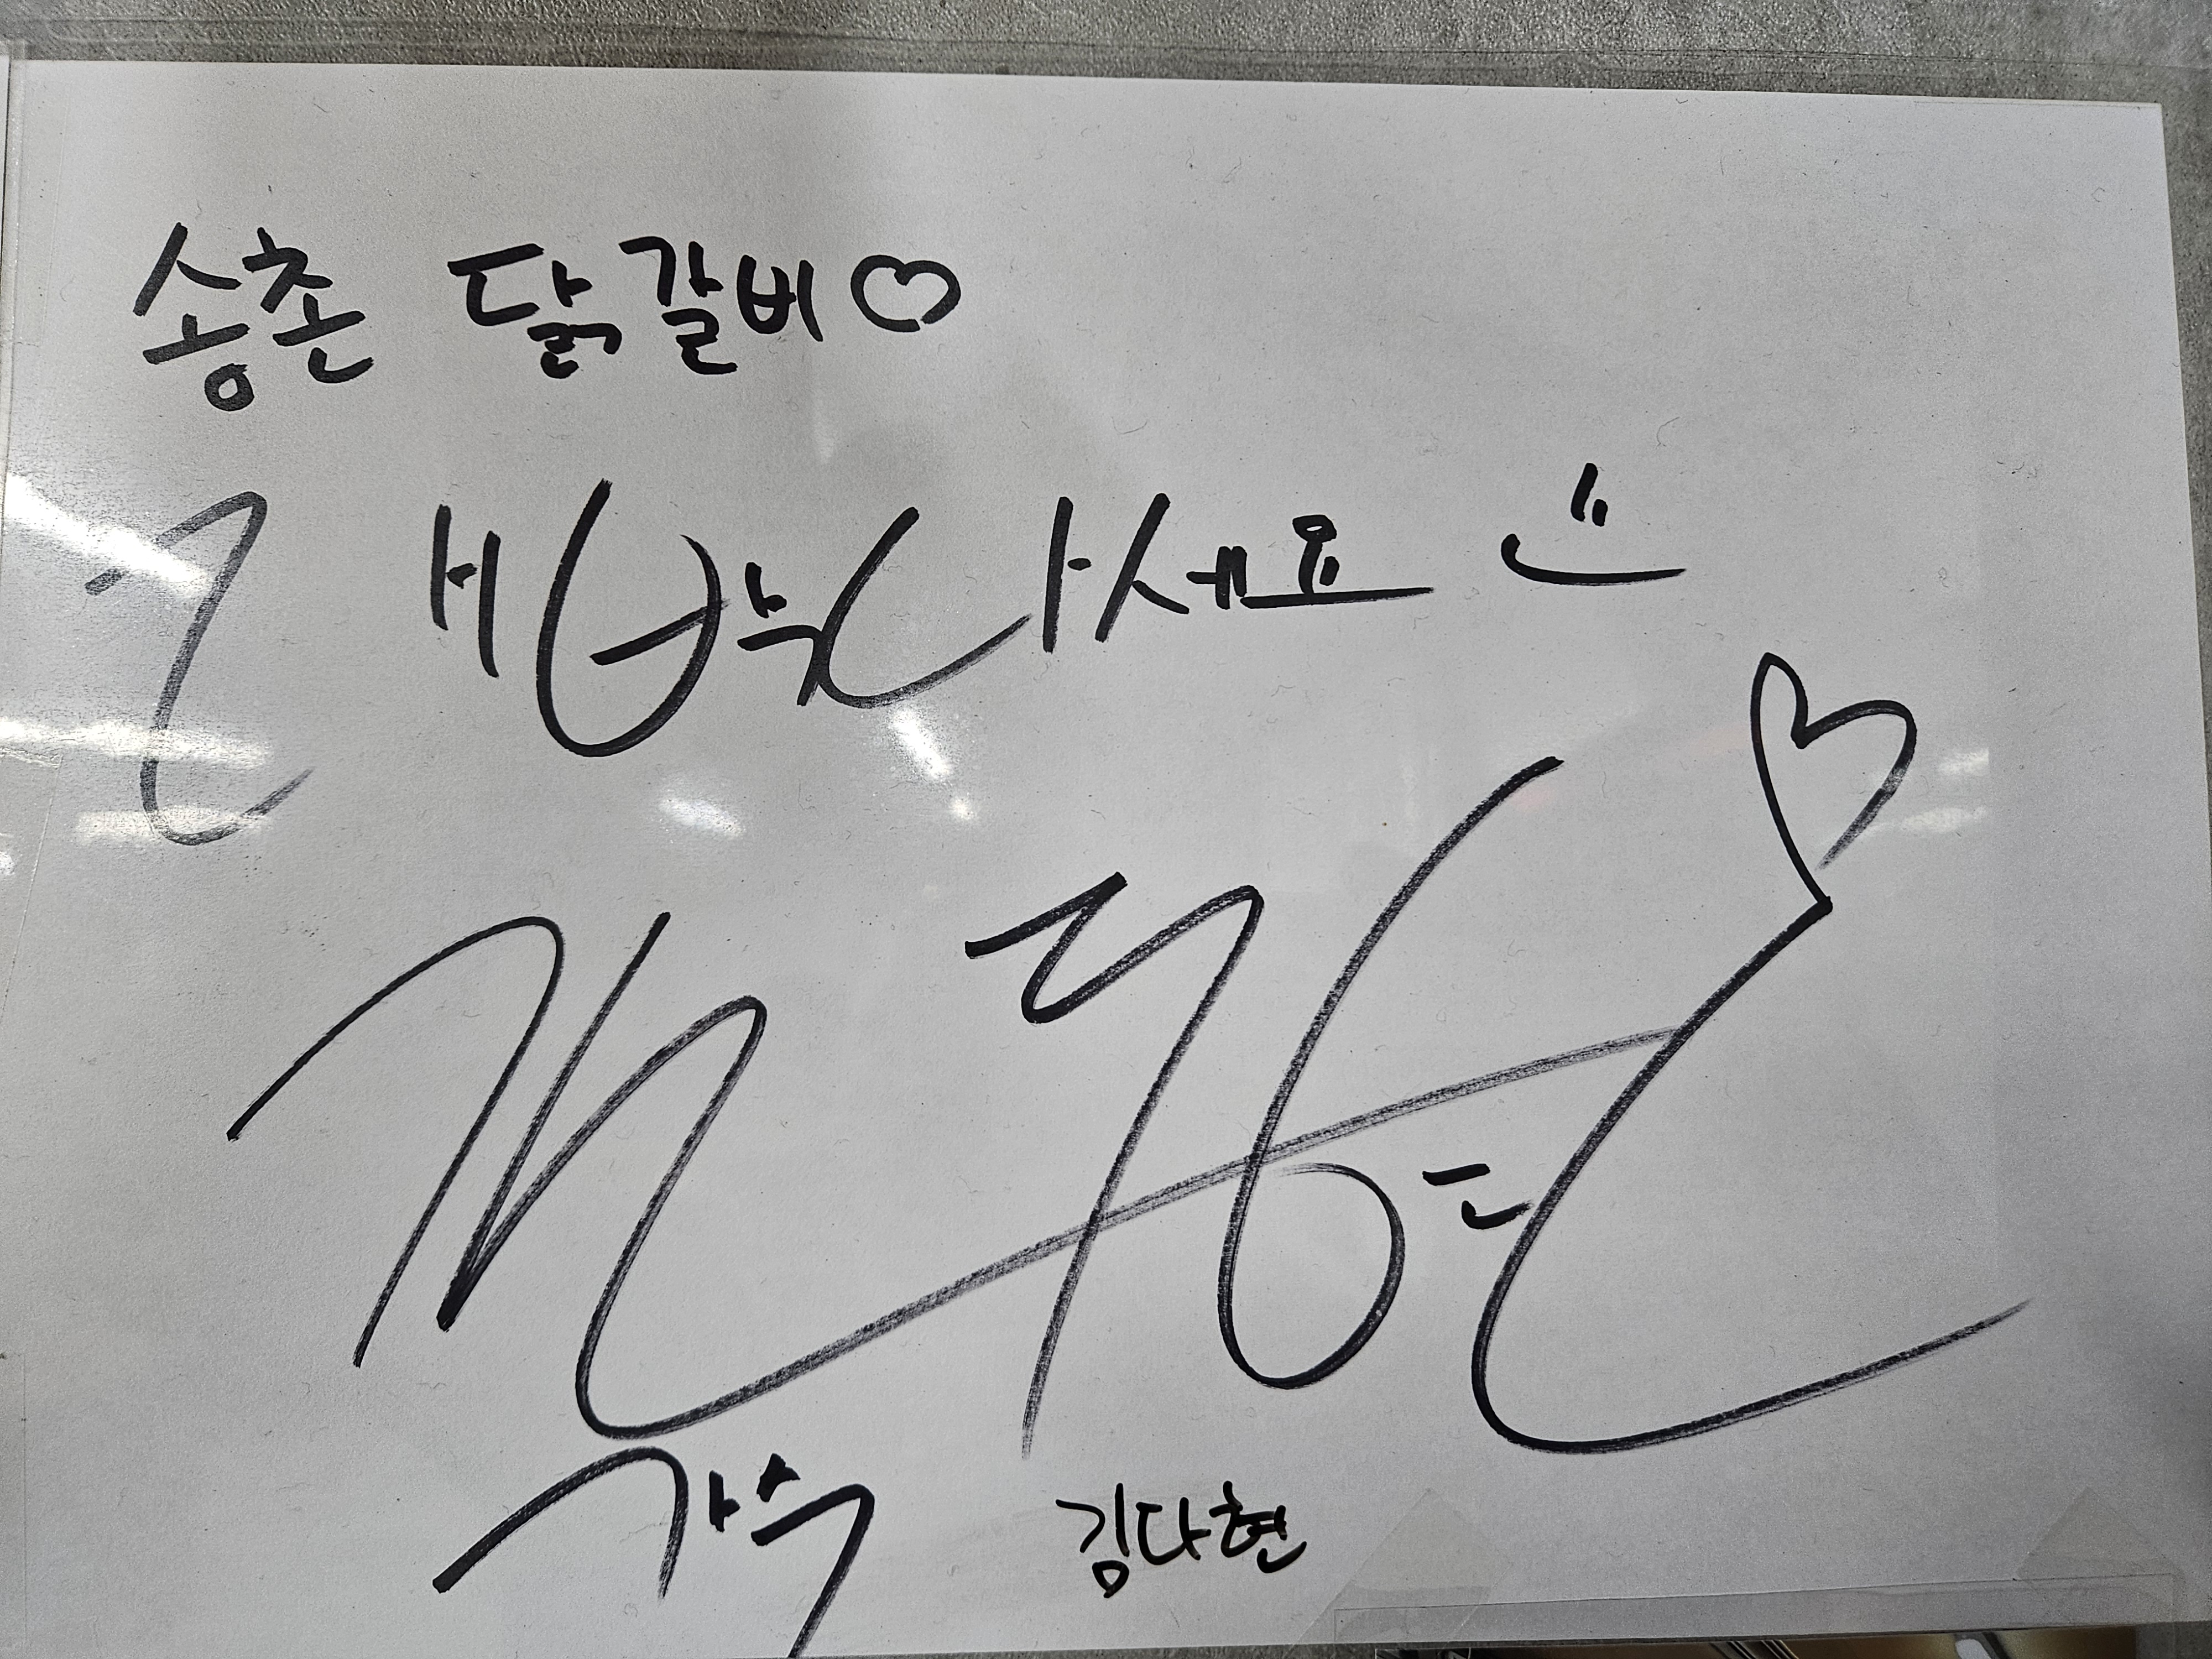 송촌 닭갈비♡
대박나세요
가수 김다현